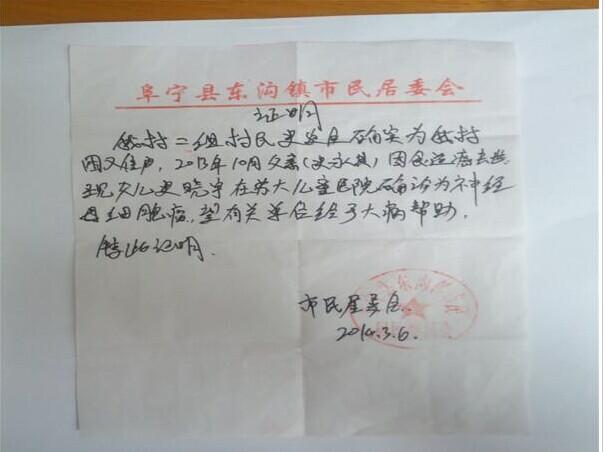 阜宁县东沟镇市民居委会
证明
我村二组村民史发自确实为我村
困又住户,2013年10月父亲(史永其)因食道癌去世
现女儿史晓宇在苏大儿童医院确诊为神经
母细胞病,望有关单位给予大病帮助,
特此证明.
市民居委会
2014.3.6.